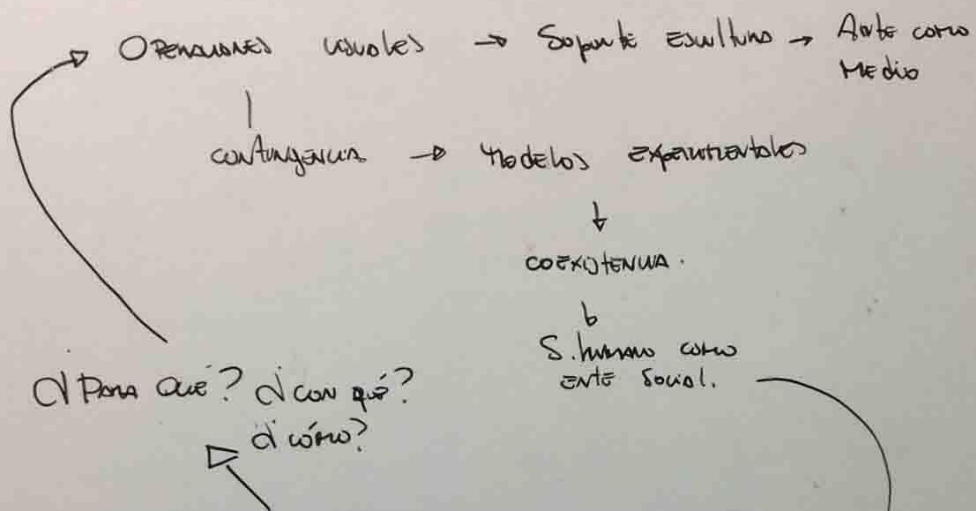 OPERACIONES visuales → Soporte ESCultura → Arte como
MEdio
CONTINGENCIA → Modelos EXPERIMENTales
↓
COEXISTENCIA.
↓
S. humano como
ENTE Social.
¿PARA QUÉ? ¿CON qué?
¿cómo?